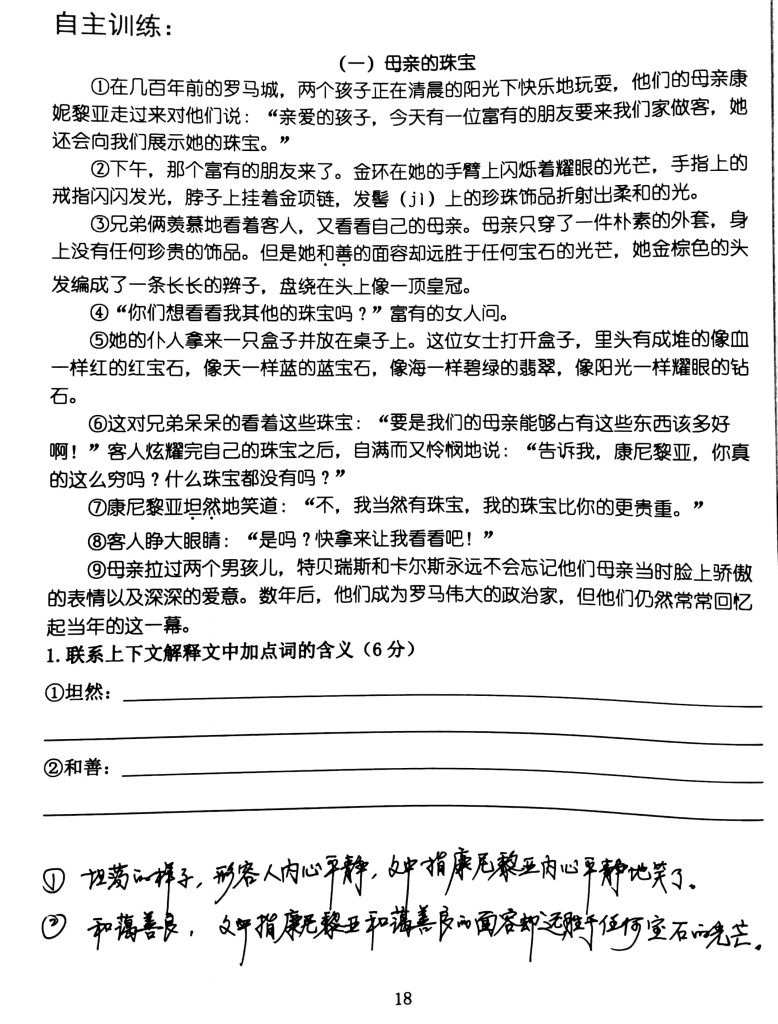 自主训练：
（一）母亲的珠宝
①在几百年前的罗马城，两个孩子正在清晨的阳光下快乐地玩耍，他们的母亲康
妮黎亚走过来对他们说：“亲爱的孩子，今天有一位富有的朋友要来我们家做客，她
还会向我们展示她的珠宝。”
②下午，那个富有的朋友来了。金环在她的手臂上闪烁着耀眼的光芒，手指上的
戒指闪闪发光，脖子上挂着金项链，发髻（jì）上的珍珠饰品折射出柔和的光。
③兄弟俩羡慕地看着客人，又看看自己的母亲。母亲只穿了一件朴素的外套，身
上没有任何珍贵的饰品。但是她和善的面容却远胜于任何宝石的光芒，她金棕色的头
发编成了一条长长的辫子，盘绕在头上像一顶皇冠。
④“你们想看看我其他的珠宝吗？”富有的女人问。
⑤她的仆人拿来一只盒子并放在桌子上。这位女士打开盒子，里头有成堆的像血
一样红的红宝石，像天一样蓝的蓝宝石，像海一样碧绿的翡翠，像阳光一样耀眼的钻
石。
⑥这对兄弟呆呆的看着这些珠宝：“要是我们的母亲能够占有这些东西该多好
啊！”客人炫耀完自己的珠宝之后，自满而又怜悯地说：“告诉我，康尼黎亚，你真
的这么穷吗？什么珠宝都没有吗？”
⑦康尼黎亚坦然地笑道：“不，我当然有珠宝，我的珠宝比你的更贵重。”
⑧客人睁大眼睛：“是吗？快拿来让我看看吧！”
⑨母亲拉过两个男孩儿，特贝瑞斯和卡尔斯永远不会忘记他们母亲当时脸上骄傲
的表情以及深深的爱意。数年后，他们成为罗马伟大的政治家，但他们仍然常常回忆
起当年的这一幕。
1.联系上下文解释文中加点词的含义（6分）
①坦然：
②和善：
① 坦荡的样子，形容人内心平静，文中指康尼黎亚内心平静地笑了。
② 和蔼善良，文中指康尼黎亚和蔼善良的面容却远胜于任何宝石的光芒。
18